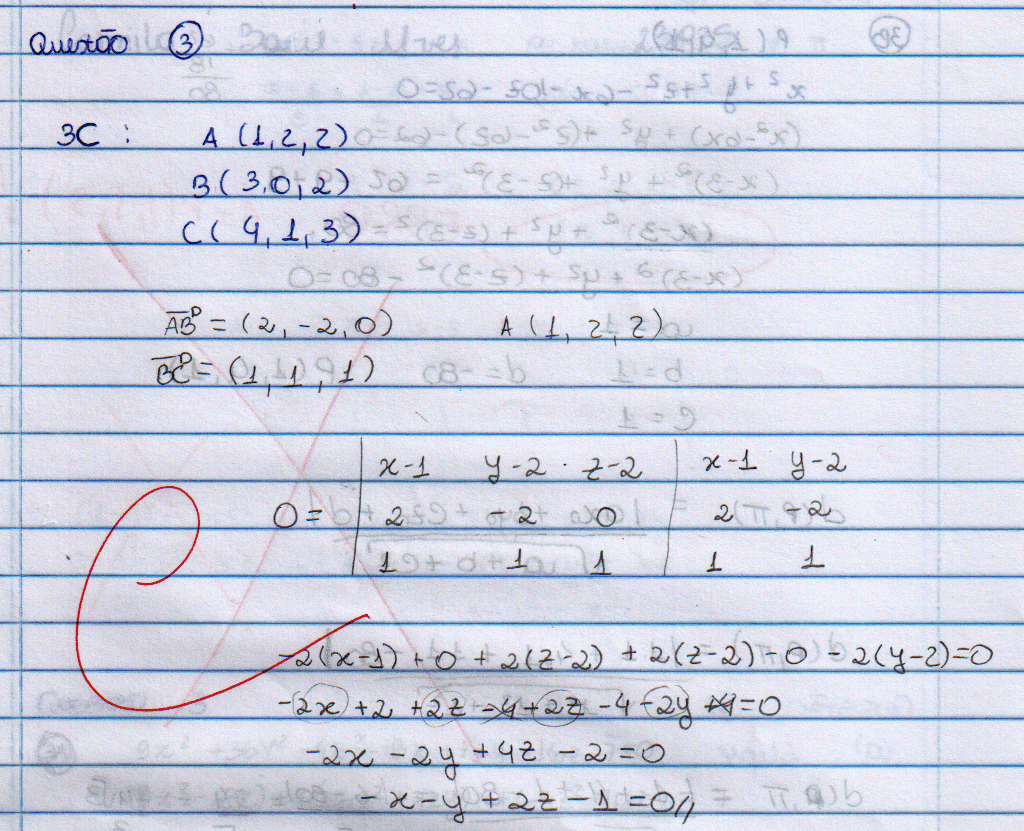 Questão ③
3C : A (1, 2, 2)
B ( 3, 0, 2)
C ( 4, 1, 3)
AB = (2, -2, 0) A (1, 2, 2)
BC = (1, 1, 1)
x-1 y-2 z-2 | x-1 y-2
0 = | 2 -2 0 | 2 -2
1 1 1 | 1 1
-2(x-1) + 0 + 2(z-2) + 2(z-2) - 0 - 2(y-2)=0
-2x + 2 + 2z - 4 + 2z - 4 - 2y + 4 = 0
-2x - 2y + 4z - 2 = 0
-x - y + 2z - 1 = 0//